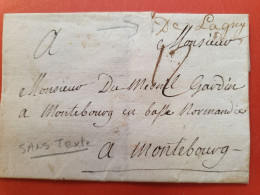 De Lagny
A Monsieur
Monsieur Du Mesnil Gardin
a Montebourg en basse Normandie
SANS Texte
a Montebourg